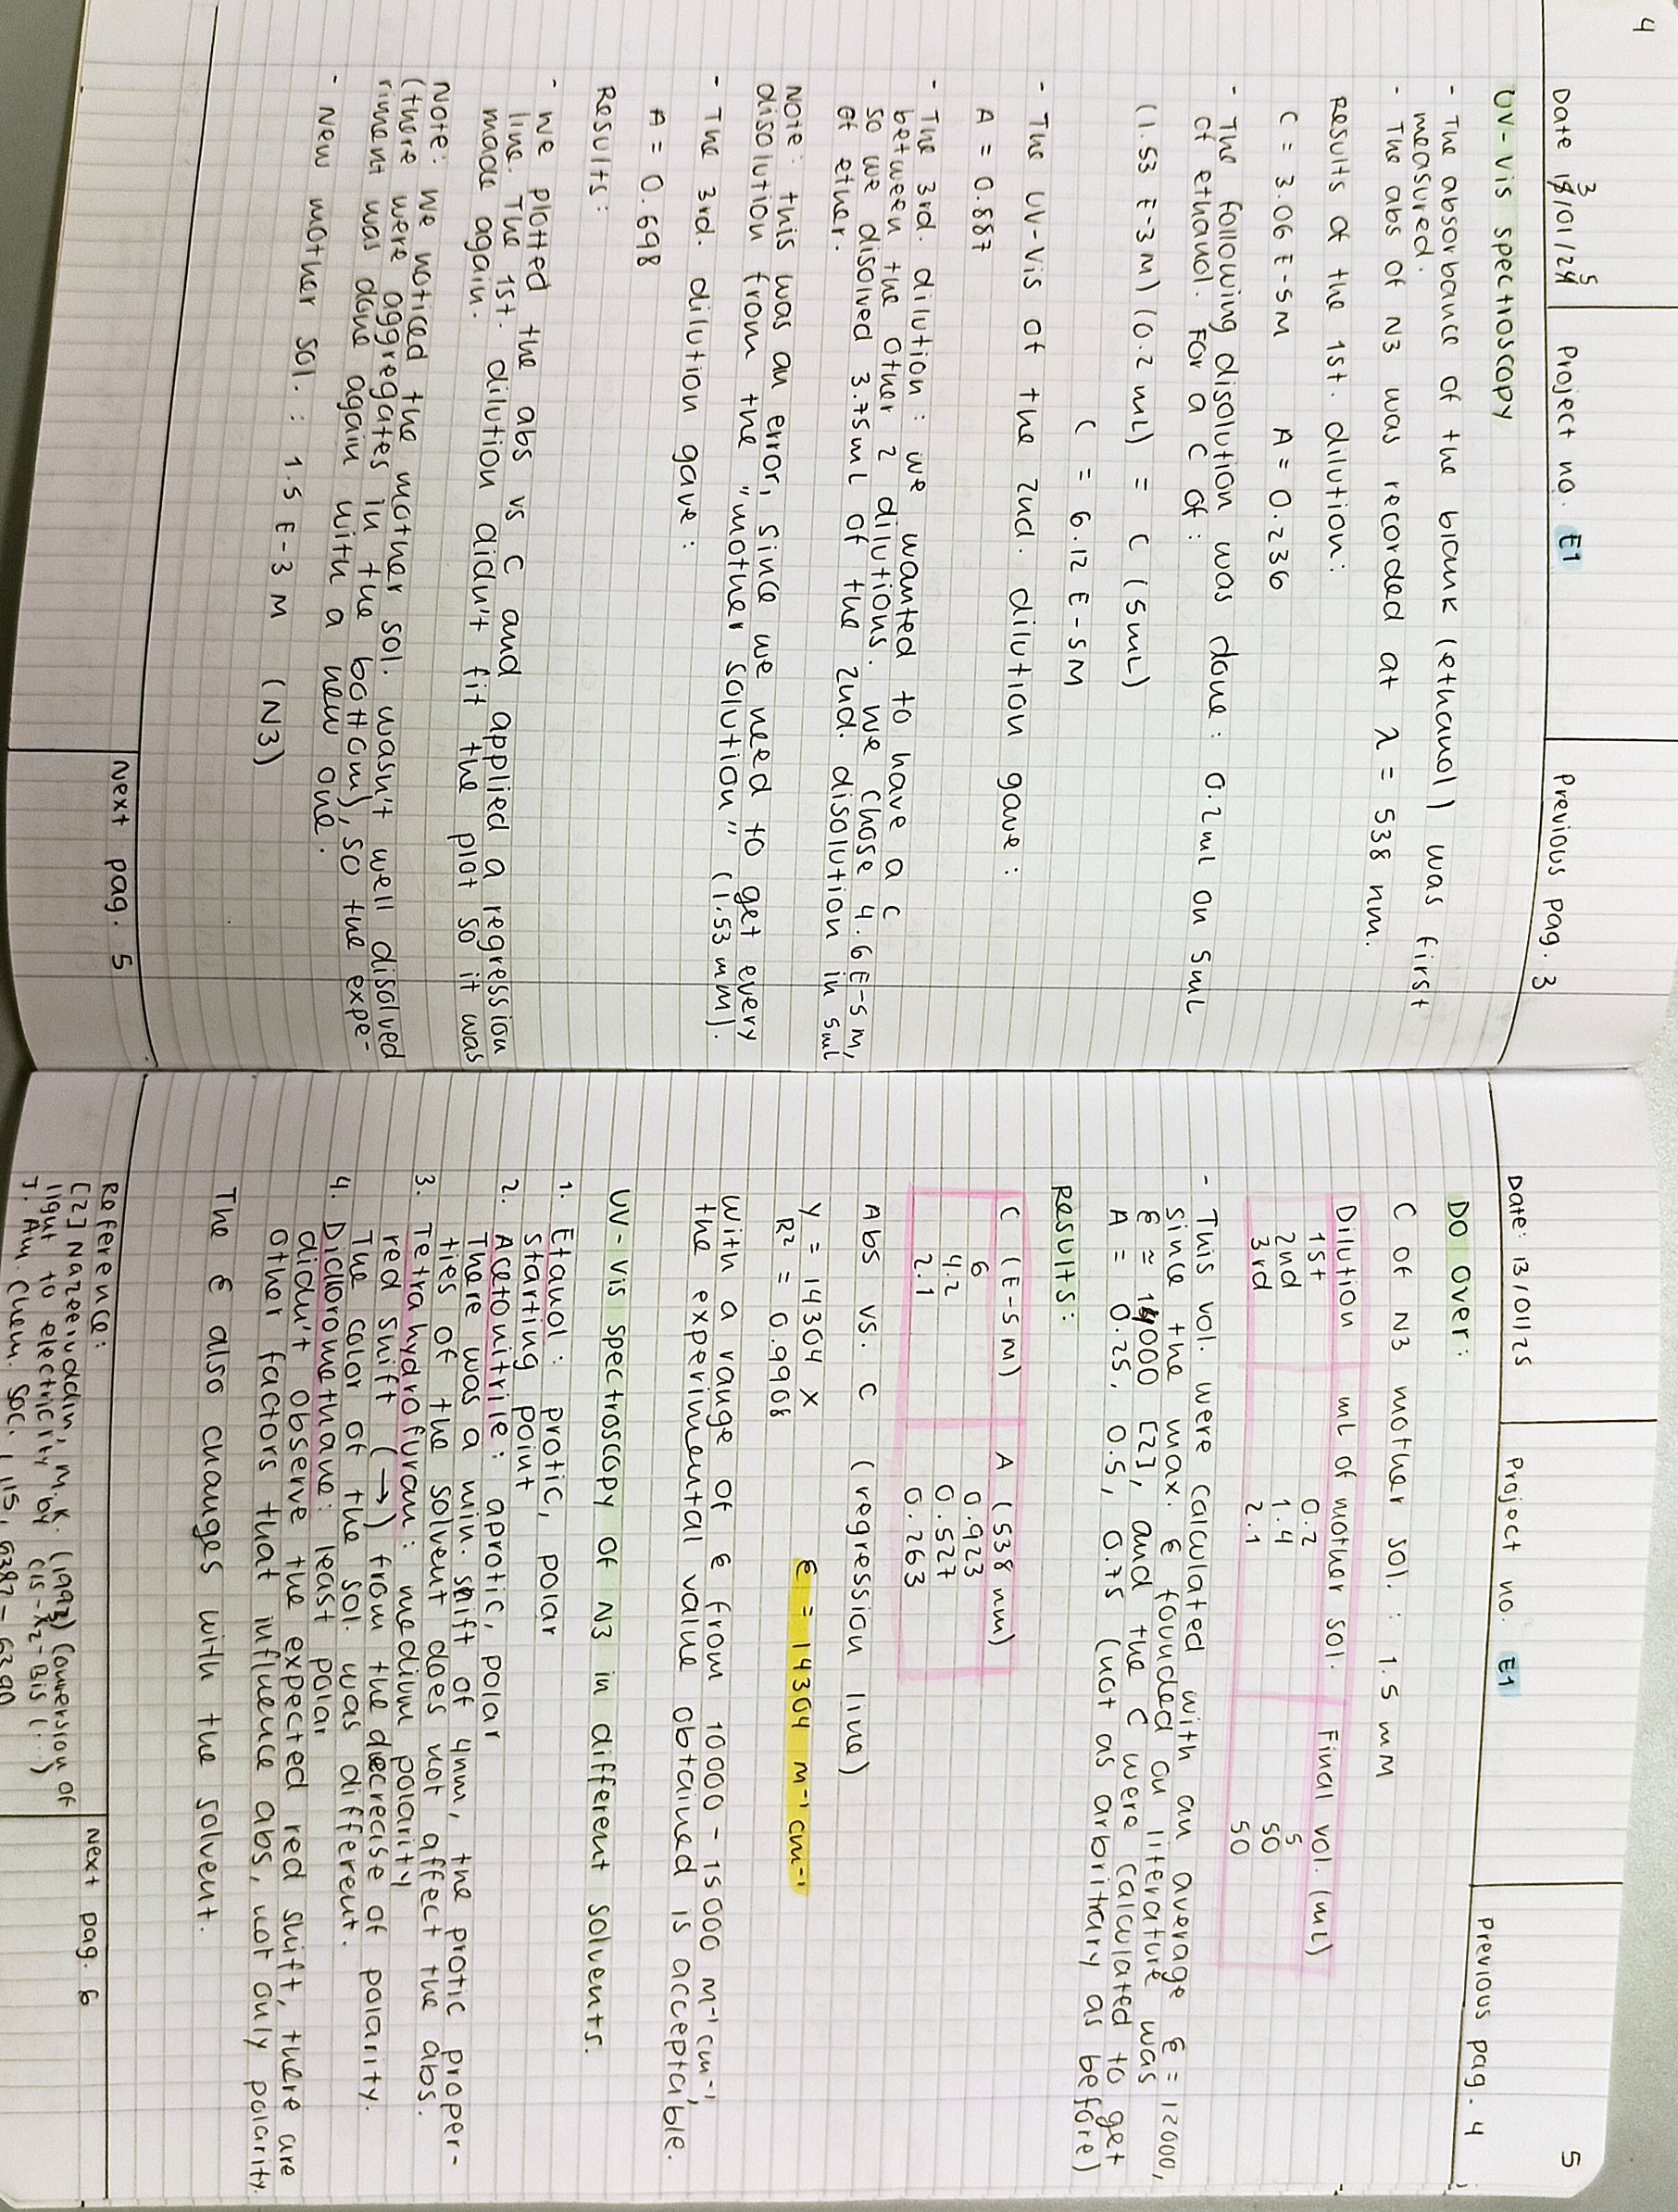 4
Date 13/01/25
Project no. E1
Previous pag. 3
UV-Vis spectroscopy
- The absorbance of the blank (ethanol) was first
measured.
- The abs of N3 was recorded at λ = 538 nm.
Results of the 1st. dilution:
C = 3.06 E-5M A = 0.236
- The following disolution was done: 0.2 mL on 5mL
of ethanol. For a C of:
(1.53 E-3 M) (0.2 mL) = C (5mL)
C = 6.12 E-5M
- The UV-Vis of the 2nd. dilution gave:
A = 0.887
- The 3rd. dilution: we wanted to have a C
between the other 2 dilutions. We chose 4.6E-5M,
so we disolved 3.75mL of the 2nd. disolution in 5mL
of ether.
Note: this was an error, since we need to get every
disolution from the "mother solution" (1.53 mM).
- The 3rd. dilution gave:
A = 0.698
Results:
- We plotted the abs vs C and applied a regression
line. The 1st. dilution didn't fit the plot so it was
made again.
Note: we noticed the mother sol. wasn't well disolved
(there were aggregates in the bottom), so the expe-
riment was done again with a new one.
- New mother sol. : 1.5 E-3 M (N3)
Next pag. 5
Date: 13/01/25
Project no. E1
Previous pag. 4
5
DO over:
C of N3 mother sol. : 1.5 mM
Dilution mL of mother sol. Final vol. (mL)
1st 0.2 5
2nd 1.4 50
3rd 2.1 50
- This vol. were calculated with an average ε = 12000,
since the max. ε founded on literature was
ε ≈ 14000 [2], and the C were calculated to get
A = 0.25, 0.5, 0.75 (not as arbritrary as before)
Results:
C (E-5 M) A (538 nm)
6 0.923
4.2 0.527
2.1 0.263
Abs vs. C (regression line)
y = 14304 x ε = 14304 M⁻¹ cm⁻¹
R² = 0.9908
With a range of ε from 10000 - 15000 M⁻¹cm⁻¹,
the experimental value obtained is acceptable.
UV-Vis spectroscopy of N3 in different solvents.
1. Etanol: protic, polar
starting point
2. Acetonitrile: aprotic, polar
There was a min. shift of 4nm, the protic proper-
ties of the solvent does not affect the abs.
3. Tetrahydrofuran: medium polarity
red shift (→) from the decrecise of polarity.
The color of the sol. was different.
4. Dicloromethane: least polar
didn't observe the expected red shift, there are
other factors that influence abs, not only polarity.
The ε also changes with the solvent.
Reference:
[2] Nazeeruddin, M.K. (1993) Conversion of
light to electricity by cis-X2-Bis (...)
J. Am. Chem. Soc. 115, 6382-6390
Next pag. 6